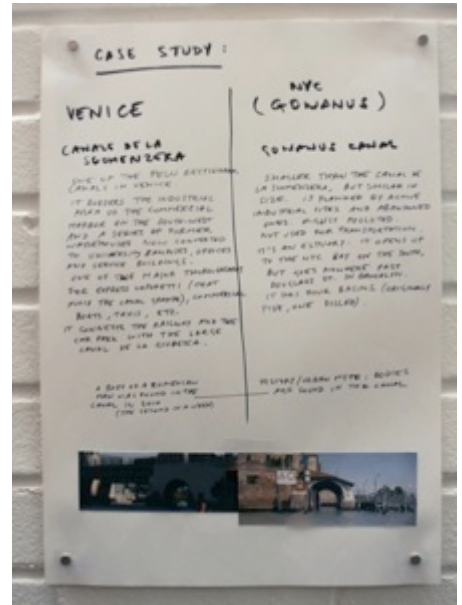 CASE STUDY:
VENICE
CANALE DE LA
SCOMENZERA
ONE OF THE FEW
CANALS IN VENICE
IT BORDERS THE INDUSTRIAL
AREA OF THE COMMERCIAL
HARBOR ON THE SOUTH-WEST
AND A SERIES OF FORMER
WAREHOUSES NOW CONVERTED
TO UNIVERSITY BRANCHES, OFFICES
AND SERVICE BUILDINGS.
ONE OF THE MAJOR THOROUGHFARES
FOR EXPRESS VAPORETTI (THAT
THE CANAL GRANDE), COMMERCIAL
BOATS, TAXIS, ETC.
IT CONNECTS THE RAILWAY AND THE
CAR PARK WITH THE LARGE
CANAL DE LA GIUDECCA.
A BODY OF A
MAN WAS FOUND IN THE
CANAL IN
(THE SECOND IN A WEEK)
NYC
(GOWANUS)
GOWANUS CANAL
SMALLER THAN THE CANAL DE
LA SCOMENZERA, BUT SIMILAR IN
SIZE. IS FLANKED BY ACTIVE
INDUSTRIAL SITES AND ABANDONED
ONES. POLLUTED
NOT USED FOR TRANSPORTATION.
IT'S AN ESTUARY. IT OPENS UP
TO THE NYC BAY ON THE SOUTH,
BUT GOES NOWHERE PAST
DOUGLASS ST. IN BROOKLYN.
IT HAS FOUR BASINS (ORIGINALLY
FIVE, ONE FILLED).
/URBAN MYTH: BODIES
ARE FOUND IN THE CANAL